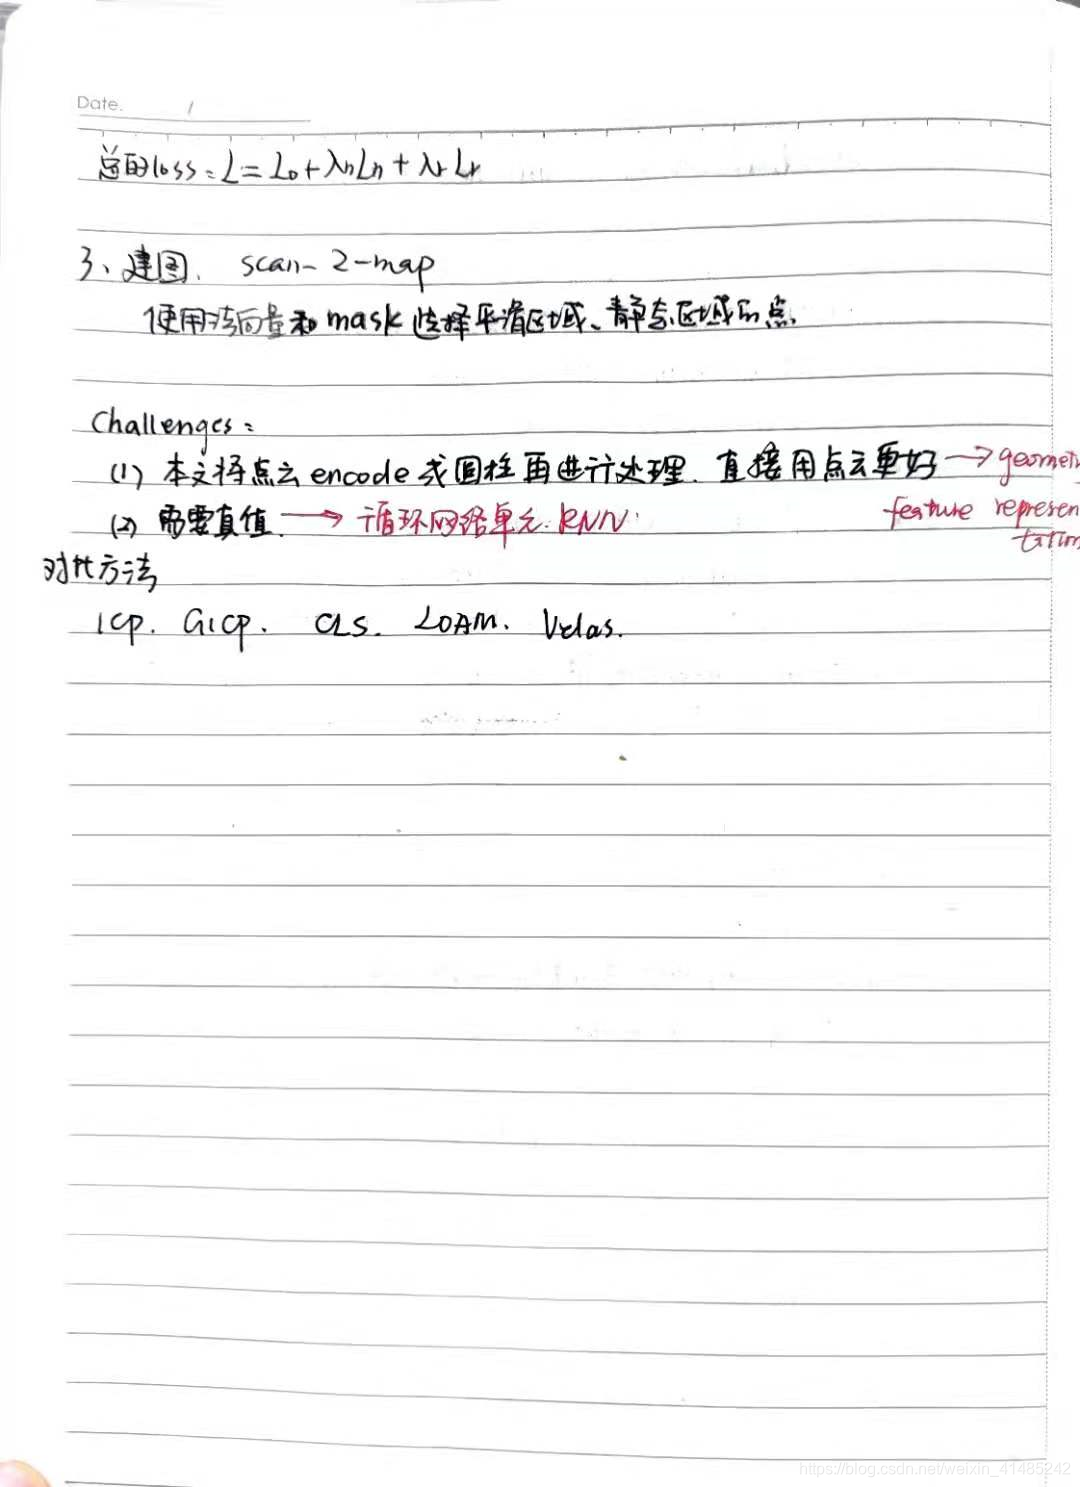 Date. /
总的loss: L = Lo + λnLn + λrLr
3、建图. scan-2-map
使用法向量和mask选择平滑区域、静态区域的点
Challenges:
(1) 本文将点云encode成圆柱再进行处理. 直接用点云更好 → geomet
feature represen
tation
(2) 需要真值. → 循环网络单元. RNN.
对比方法
ICP. GICP. CLS. LOAM. Velas.
https://blog.csdn.net/weixin_41485242